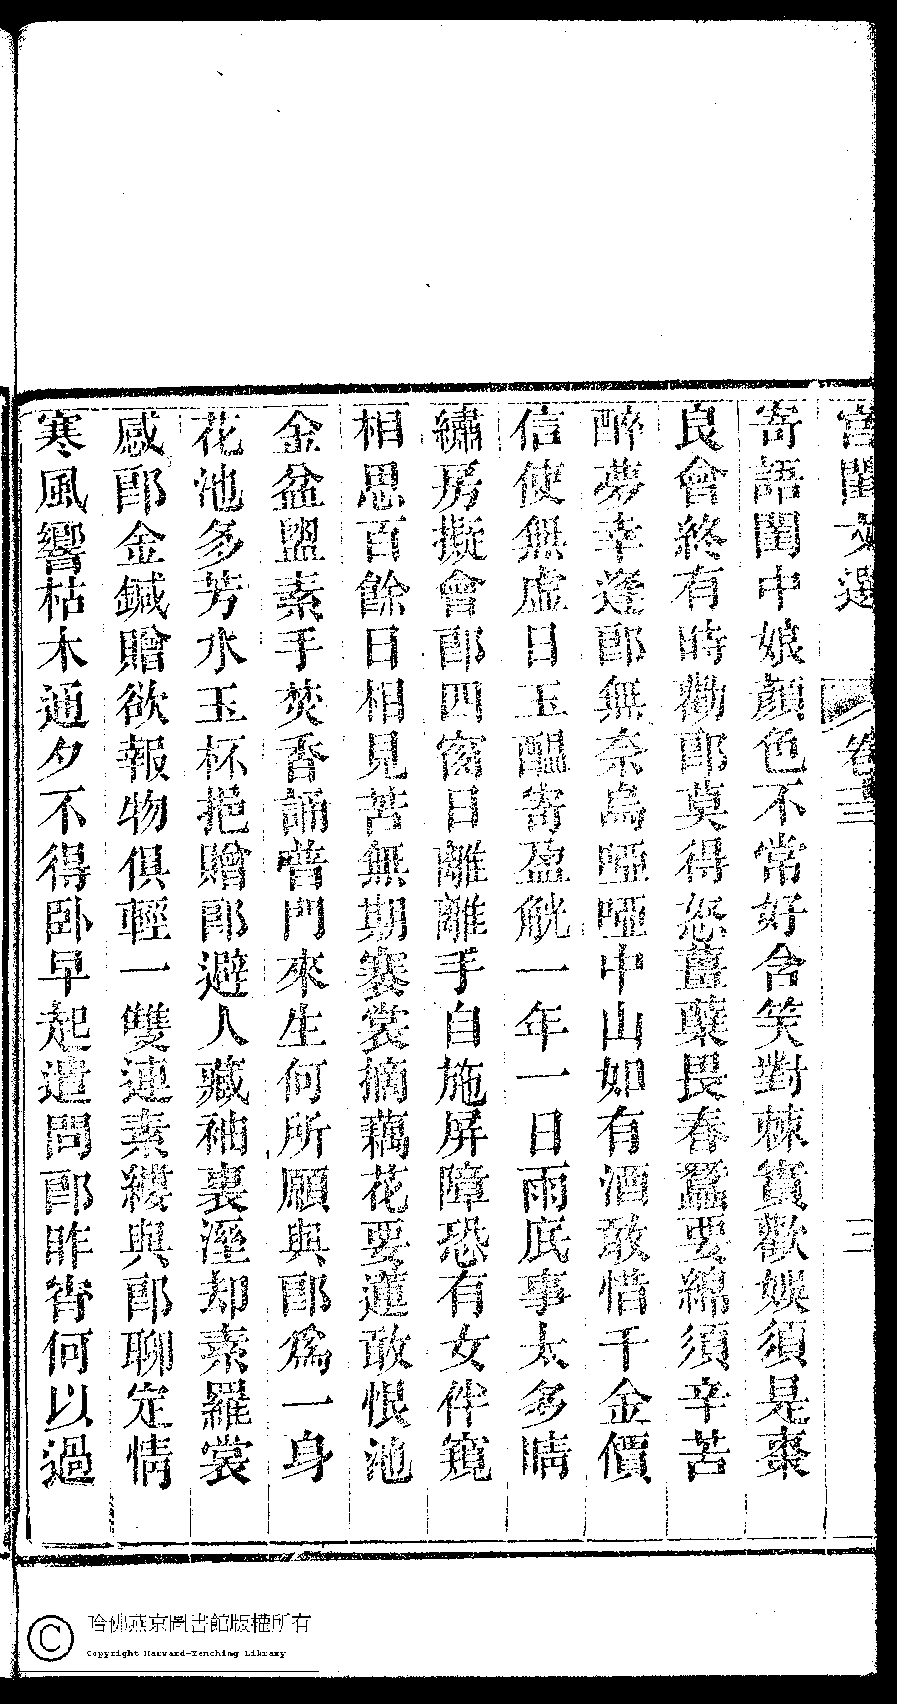 宮閨文選 卷十三 三
寄語閨中娘顏色不常好含笑對棘實歡娛須是棗
良會終有時勸郎莫得怒薑蘗畏春蠶要綿須辛苦
醉夢幸逢郎無奈烏啞啞中山如有酒敢惜千金價
信使無虛日玉醞寄盈觥一年一日雨底事太多晴
繡房擬會郎四窗日離離手自施屏障恐有女伴窺
相思百餘日相見苦無期褰裳摘藕花要蓮敢恨池
金盆盥素手焚香誦普門來生何所願與郎爲一身
花池多芳水玉杯挹贈郎避人藏袖裏溼却素羅裳
感郎金鍼贈欲報物俱輕一雙連素縷與郎聊定情
寒風響枯木通夕不得卧早起遣問郎昨宵何以過
哈佛燕京圖書館版權所有
Copyright Harvard-Yenching Library